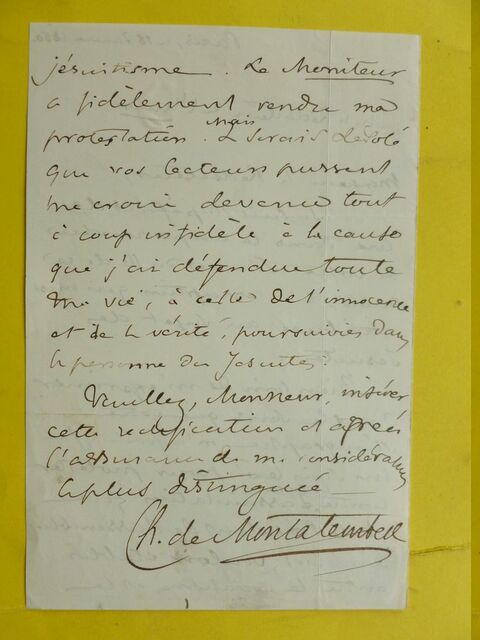 jésuitisme. Le Moniteur
a fidèlement rendu ma
protestation. Mais je serais désolé
que vos lecteurs pussent
me croire devenu tout
à coup infidèle à la cause
que j'ai défendue toute
ma vie, à celle de l'innocence
et de la vérité, poursuivies dans
la personne des Jésuites.
Veuillez, Monsieur, insérer
cette rectification et agréer
l'assurance de ma considération
la plus distinguée
Ch. de Montalembert